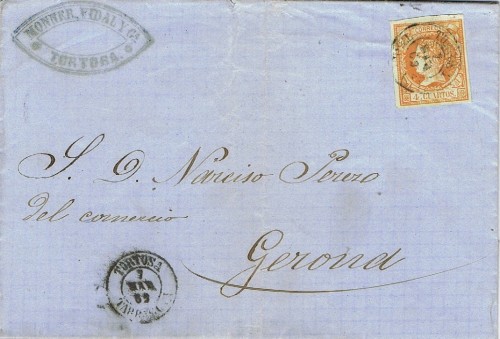 MONNER, VIDAL Y CA
TORTOSA.
CORREOS
4 CUARTOS
S. D. Narciso Perez
del comercio
Gerona
TORTOSA
7
MAR
TARRAGONA